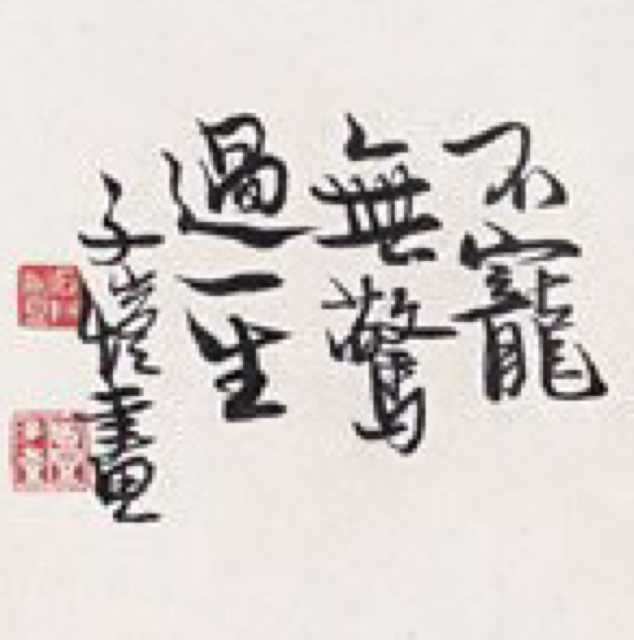 不寵
無驚
過一生
子愷畫